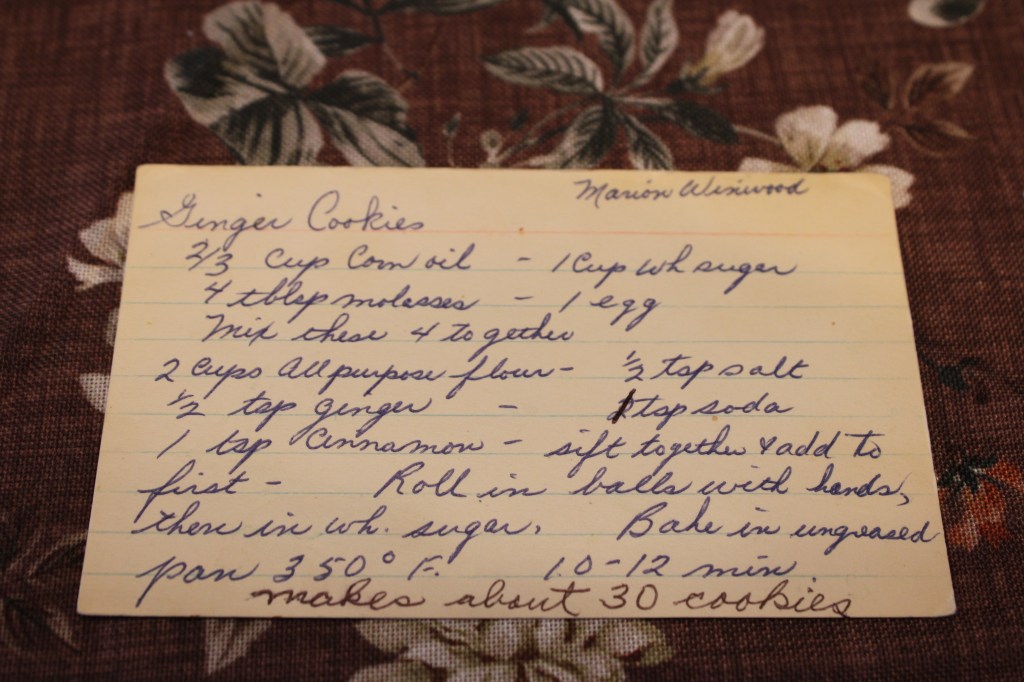 Marion Winwood
Ginger Cookies
2/3 cup Corn oil - 1 Cup wh sugar
4 tblsp molasses - 1 egg
Mix these 4 together
2 Cups All purpose flour - 1/2 tsp salt
1/2 tsp ginger - 1 tsp soda
1 tsp Cinnamon - sift together & add to
first - Roll in balls with hands,
then in wh. sugar. Bake in ungreased
pan 350° F. 10-12 min
makes about 30 cookies